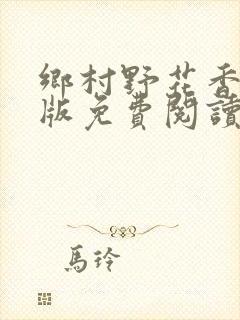 鄉村野花香
版免費閱讀
馬玲